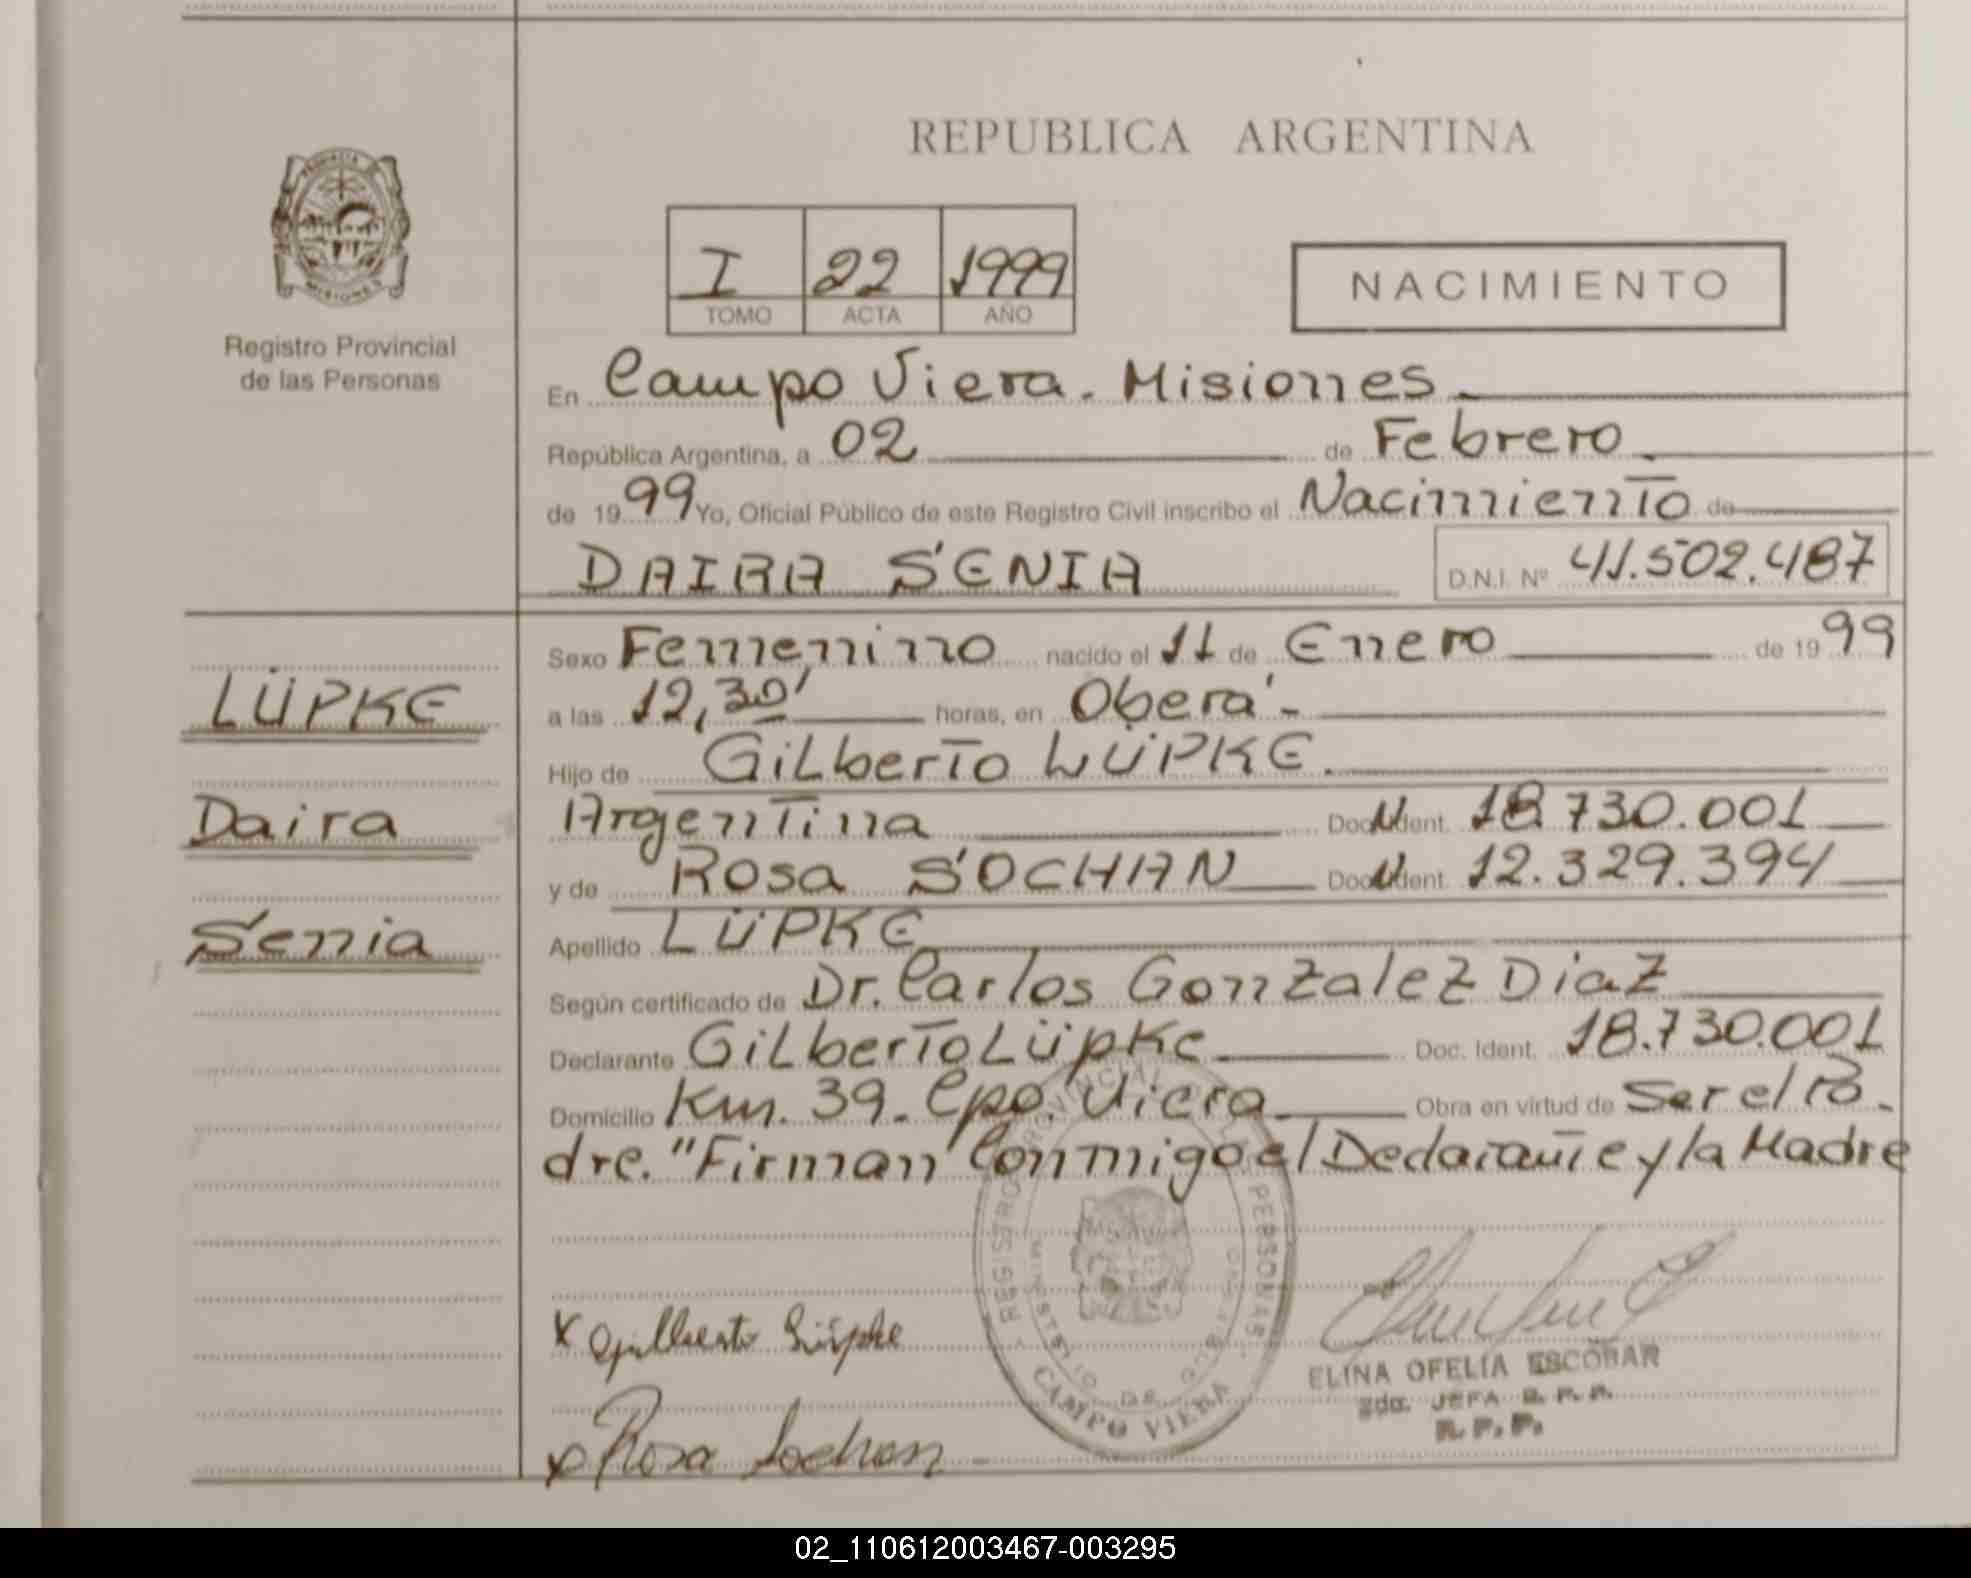 REPUBLICA ARGENTINA
I 22 1999
TOMO ACTA AÑO
NACIMIENTO
Registro Provincial
de las Personas
En Campo Viera. Misiones
República Argentina, a 02 de Febrero
de 1999 Yo, Oficial Público de este Registro Civil inscribo el Nacimiento de
DAIRA SENIA D.N.I. Nº 41.502.487
LÜPKE
Daira
Senia
Sexo Femenino nacido el 11 de Enero de 1999
a las 12,30' horas, en Oberá
Hijo de Gilberto LÜPKE.
Argentina Doc. Ident. 18.730.001
y de Rosa SOCHAN Doc. Ident. 12.329.394
Apellido LÜPKE
Según certificado de Dr. Carlos Gonzalez Diaz
Declarante Gilberto Lüpke Doc. Ident. 18.730.001
Domicilio Km. 39. Cpo. Viera Obra en virtud de Ser el Pa-
dre. "Firman Conmigo el Declarante y la Madre
x Gilberto Lüpke
x Rosa Sochan
REGISTRO PROVINCIAL DE LAS PERSONAS
MINISTERIO DE GOBIERNO
CAMPO VIERA
ELINA OFELIA ESCOBAR
2da. JEFA R. P. P.
R. P. P.
02_110612003467-003295